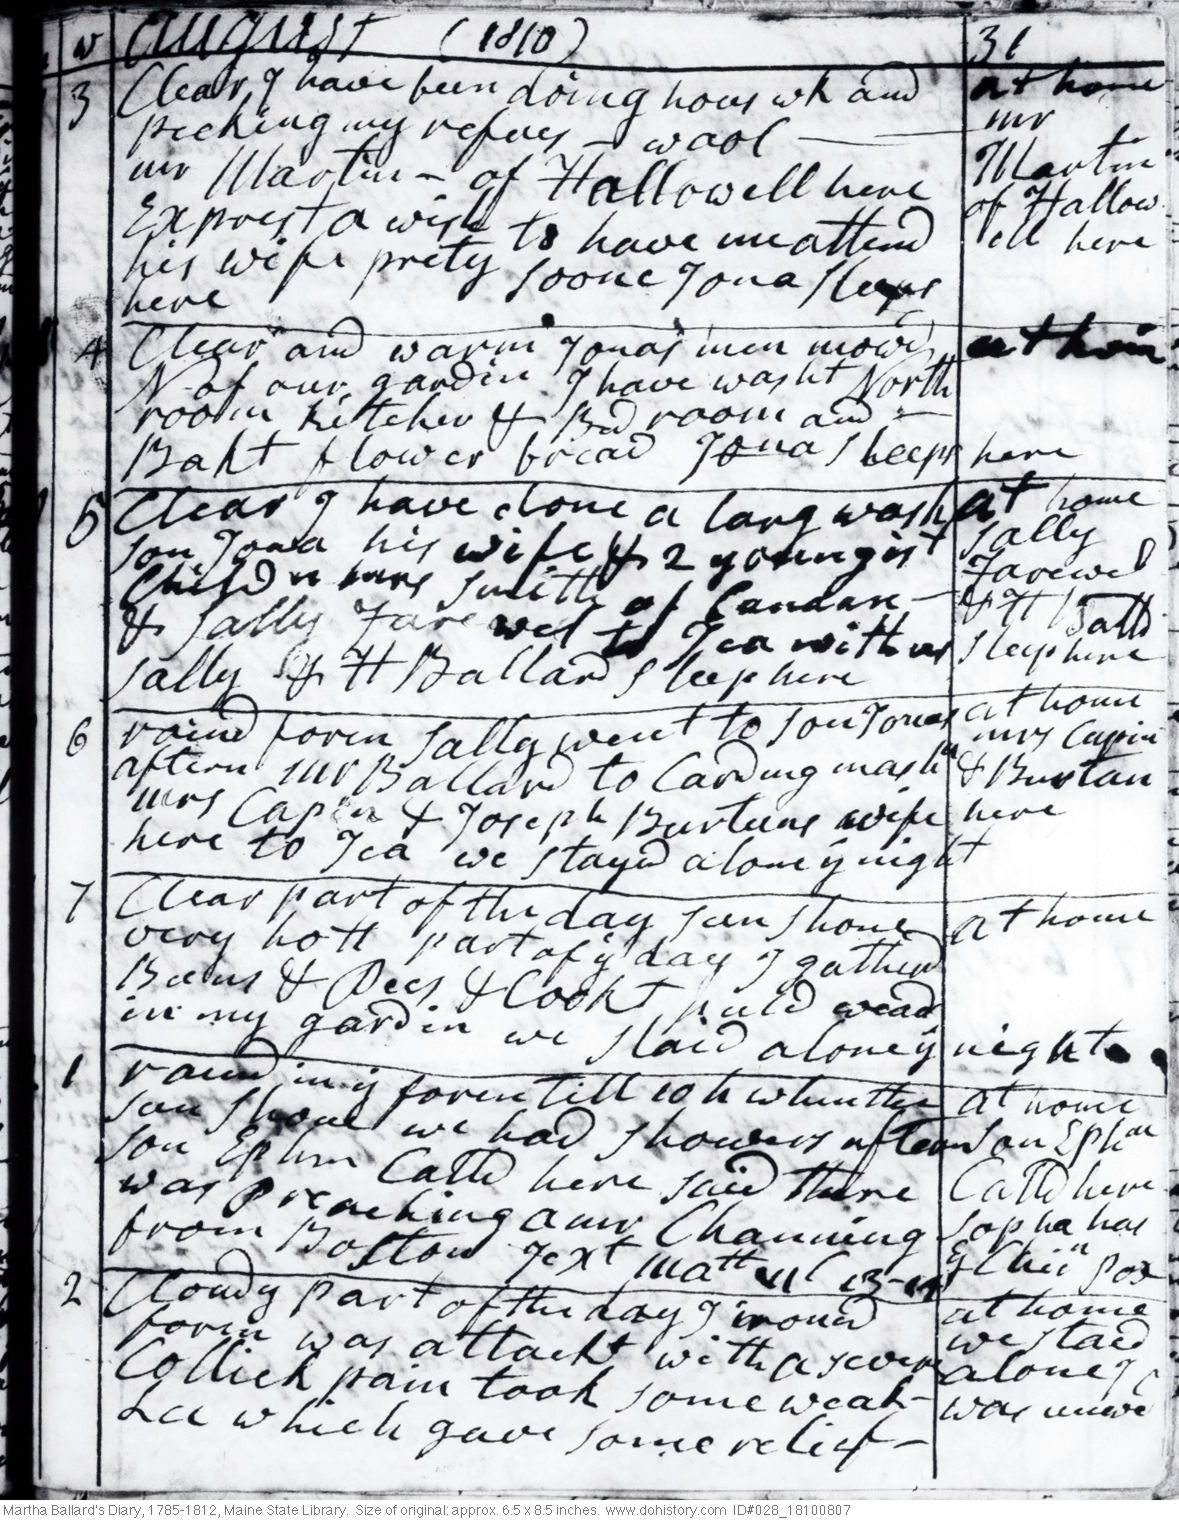 w august (1810) 31
3 Clear, I have been doing hous wk and at home
picking my refues - wool - mr
mr Martin - of Hallowell here Martin
Exprest a wish to have me attend of Hallow
his wife prety soone Jona Sleeps ell here
here
4 Clear and warm Jonas men mowd at hom
N of our gardin I have washt North
room kitchen & Bd room and -
Bakt flower bread Jona Sleeps here
5 Clear I have done a larg wash at home
son Jona his wife & 2 youngist sally
Child n mrs Smith of Candare - Farewel
& sally Farewel to Tea with us & H Balld
sally & H Ballard sleep here sleep here
6 raind foren sally went to son Jonas at home
aftern mr Ballard to Carding mashn mrs Capin
mrs Capin & Joseph Burtuns wife & Burtan
here to Tea we stayd alone ÿ night here
7 Clear part of the day sun shone at home
very hott part of ÿ day I gatherd
Beens & Pees & Cookt puld weads
in my gardin we staid alone ÿ night
1 raind in ÿ foren till 10 h when the at home
sun shone we had showers aftern son Ephm
son Ephm Calld here said there Calld here
was preaching a mr Channing sopha has
from Boston Text Matt 11 C 13-14 ÿ Chin pox
2 Cloudy part of the day I irond at home
foren was attackt with a severe we staid
Collick pain took some weak alone I
Lee which gave some relief - was unwel
Martha Ballard's Diary, 1785-1812, Maine State Library. Size of original: approx. 6.5 x 8.5 inches. www.dohistory.com ID#028_18100807